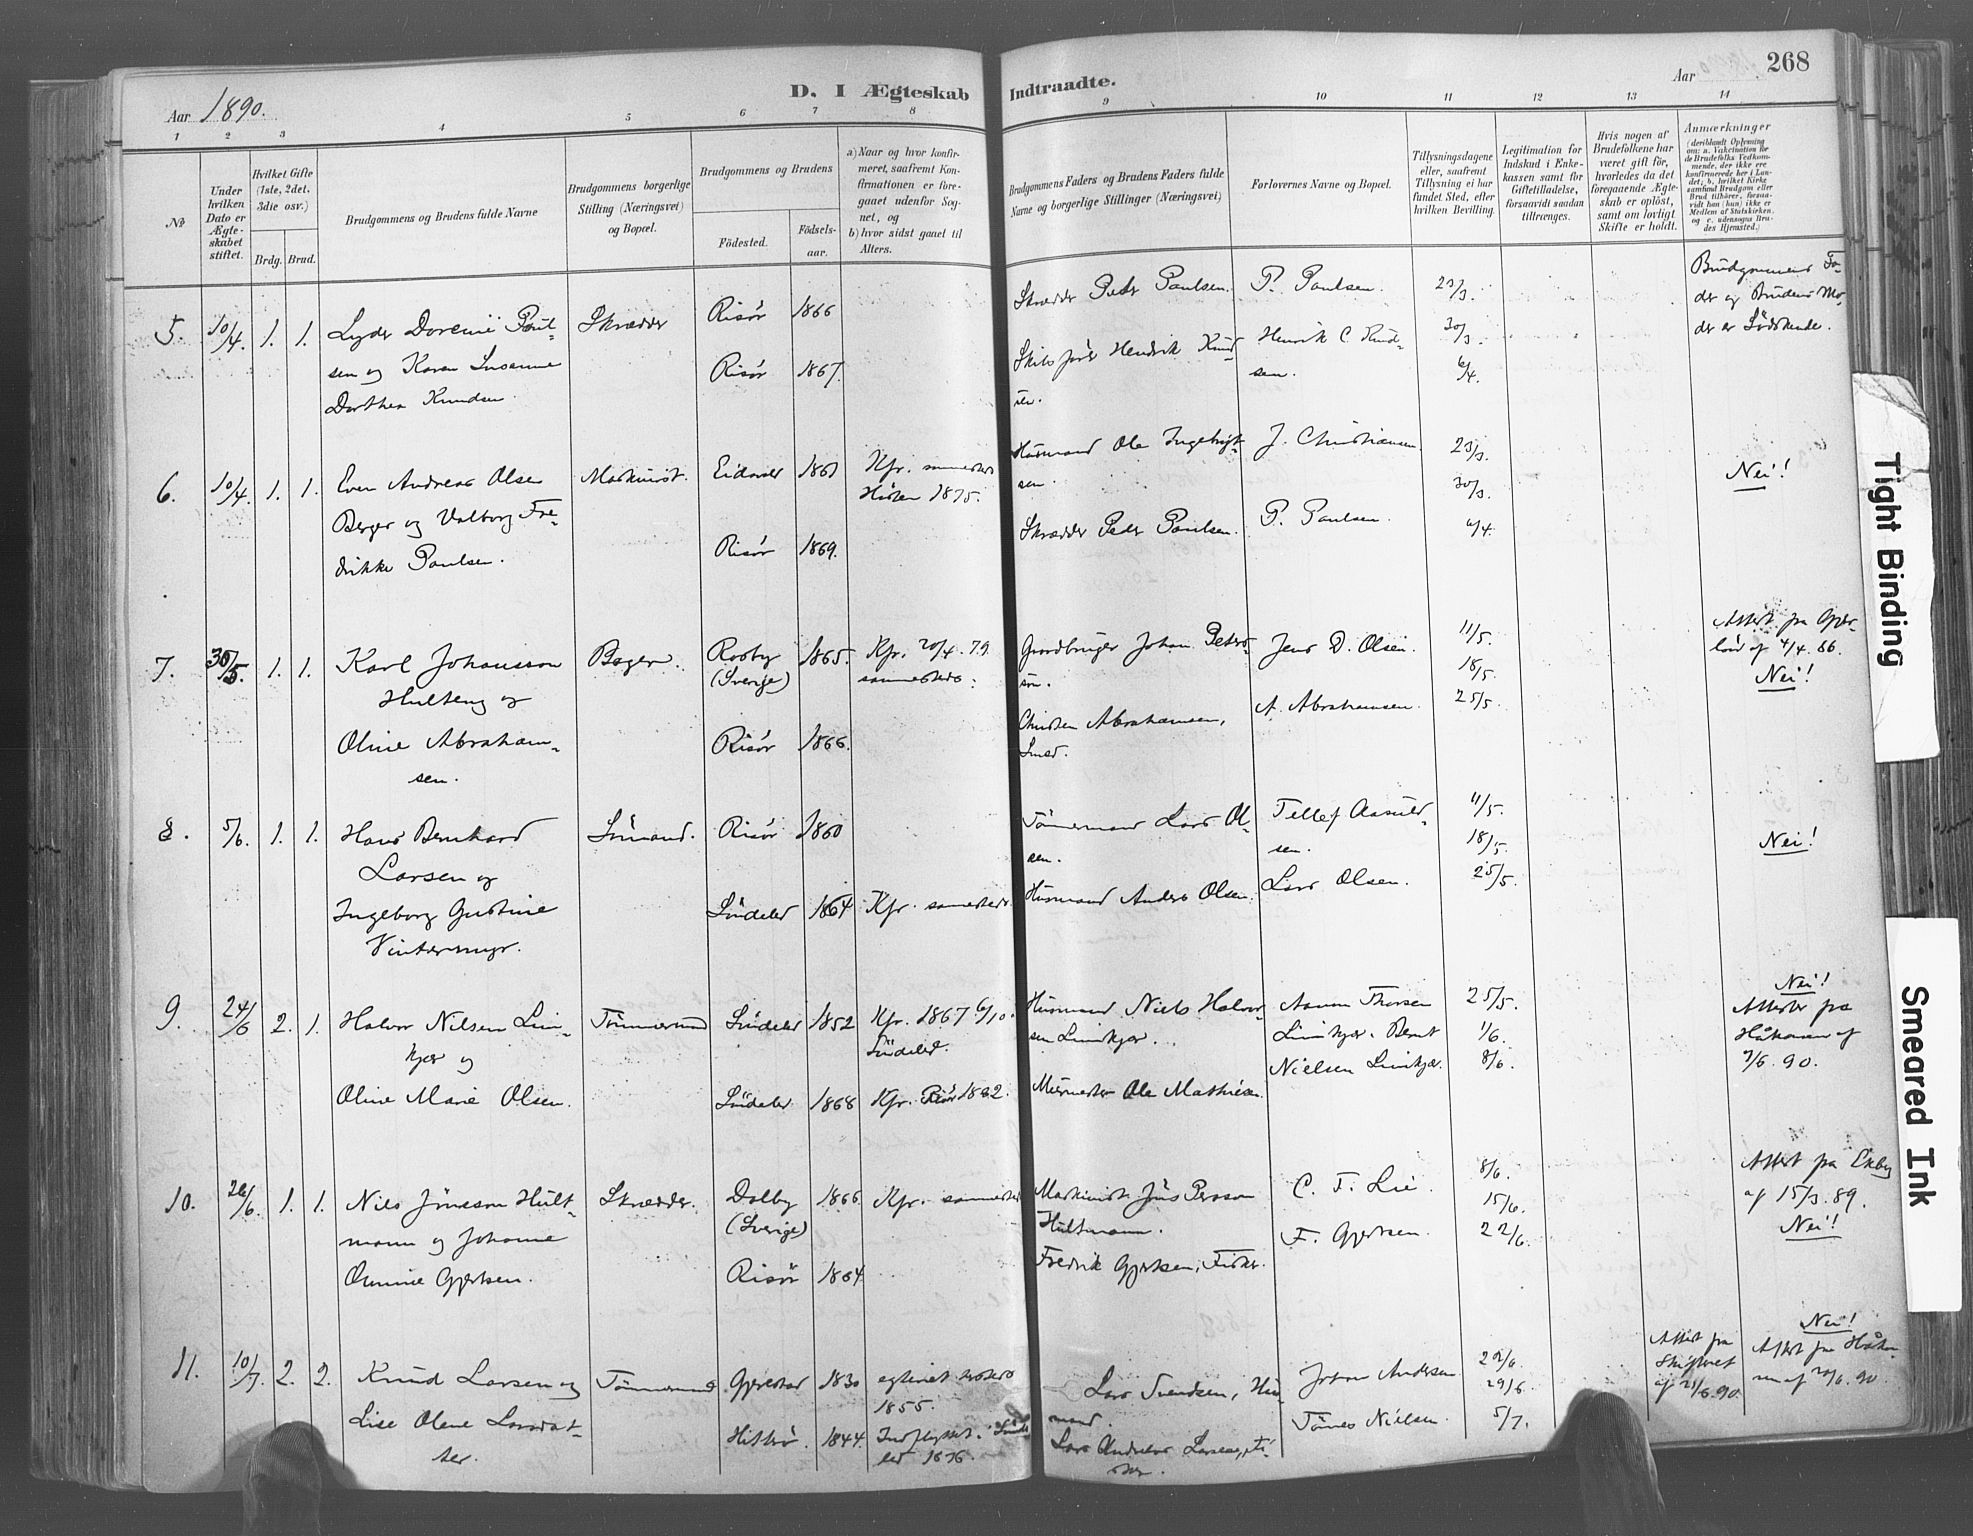 Aar 1890.
D. I Ægteskab Indtraadte.
Aar
268
1 2 3 4 5 6 7 8 9 10 11 12 13 14
№
Under hvilken Dato er Ægteskabet stiftet.
Hvilket Gifte (1ste, 2det, 3die osv.)
Brdg. Brud.
Brudgommens og Brudens fulde Navne
Brudgommens borgerlige Stilling (Næringsvei) og Bopæl.
Brudgommens og Brudens
Födested.
Födselsaar.
a) Naar og hvor konfirmeret, saafremt Konfirmationen er foregaaet udenfor Sognet, og
b) hvor sidst gaaet til Alters.
Brudgommens Faders og Brudens Faders fulde Navne og borgerlige Stillinger (Næringsvei)
Forlovernes Navne og Bopæl.
Tillysningsdagene eller, saafremt Tillysning ei har fundet Sted, efter hvilken Bevilling.
Legitimation for Indskud i Enkekassen samt for Giftetilladelse, forsaavidt saadan tiltrænges.
Hvis nogen af Brudefolkene har været gift för, hvorledes da det foregaaende Ægteskab er oplöst, samt om lovligt Skifte er holdt.
Anmærkninger
(deriblandt Oplysning om: a. Vakcination for de Brudefolks Vedkommende, der ikke ere konfirmerede her i Landet; b. hvilket Kirkesamfund Brudgom eller Brud tilhörer, forsaavidt han (hun) ikke er Medlem af Statskirken, og c. udensogns Brudes Hjemsted.)
5. 10/4. 1. 1.
Lyder Dorenii Paulsen og Karen Susanne
Dorthea Knudsen.
Skrædder
Risör 1866
Risör 1867.
Skrædder Peder Paulsen.
Skibsförer Hendrik Knudsen.
P. Paulsen.
Henrik C. Knudsen.
23/3.
30/3.
6/4.
Brudgommens Fader og Brudens Moder er Södskende.
6. 10/4. 1. 1.
Even Andreas Olsen
Berger og Valborg Fredrikke Paulsen.
Maskinist.
Eidanger
Risör 1869.
Kfr. sammesteds
1875.
Husmand Ole Ingebrigtsen.
Skrædder Peder Paulsen.
J. Christiansen
P. Paulsen.
23/3.
30/3.
6/4.
Nei!
7. 30/5. 1. 1.
Karl Johansson
Hulteng og
Oline Abrahamsen.
Bager.
(Sverige) 1865.
Risör 1866.
Kfr. 20/4. 79.
sammesteds.
Gaardbruger Johan Petersson.
Christen Abrahamsen,
Smed.
Jens D. Olsen.
A. Abrahamsen.
11/5.
18/5.
25/5.
Attest fra
af 4/4. 86.
Nei!
8. 5/6. 1. 1.
Hans Bernhard
Larsen og
Ingeborg Gustine
Vintermyr.
Sömand.
Risör 1860
Söndeled 1864
Kfr. sammesteds
Tömmermand Lars Olsen.
Husmand Anders Olsen.
Tellef Aanulsen.
Lars Olsen.
11/5.
18/5.
25/5.
Nei!
9. 24/6 2. 1.
Halvor Nilsen Limkjær og
Oline Marie Olsen.
Tömmermand
Söndeled 1852
Söndeled 1868
Kfr. 1867 6/10.
Söndeled.
Kfr. Risör 1882.
Husmand Niels Halvorsen Limkjær.
Murmester Ole Mathisen.
Aanon Thorsen
Limkjær. Bernt
Nielsen Limkjær.
25/5.
1/6.
8/6.
Nei!
Attester fra
Håkonsen af
9/6. 90.
10. 26/6. 1. 1.
Nils Jönsson Hultmann og Johanne
Gjertsen.
Skrædder.
Dalby 1866
(Sverige)
Risör 1864
Kfr. sammesteds
Maskinist Jöns Persson
Hultmann.
Fredrik Gjertsen, Fisker.
C. F. Lie.
F. Gjertsen.
8/6.
15/6.
22/6.
Attest fra
af 15/3. 89.
Nei!
11. 10/7. 2. 2.
Knud Larsen og
Lise Olene Larsdatter.
Tömmermand
Gjerestad 1830
Hitterö. 1844.
1855.
Indflyttet. Söndeled 1876.
Lars Svendsen, Husmand.
Lars Andreas Larsen, Fisker.
Johan Andersen
Tönnes Nielsen.
22/6.
29/6.
5/7.
Attest fra
Skifteret
af 21/6. 90.
Nei!
Attest fra Håkonsen af 20/6. 90.
Tight Binding
Smeared Ink